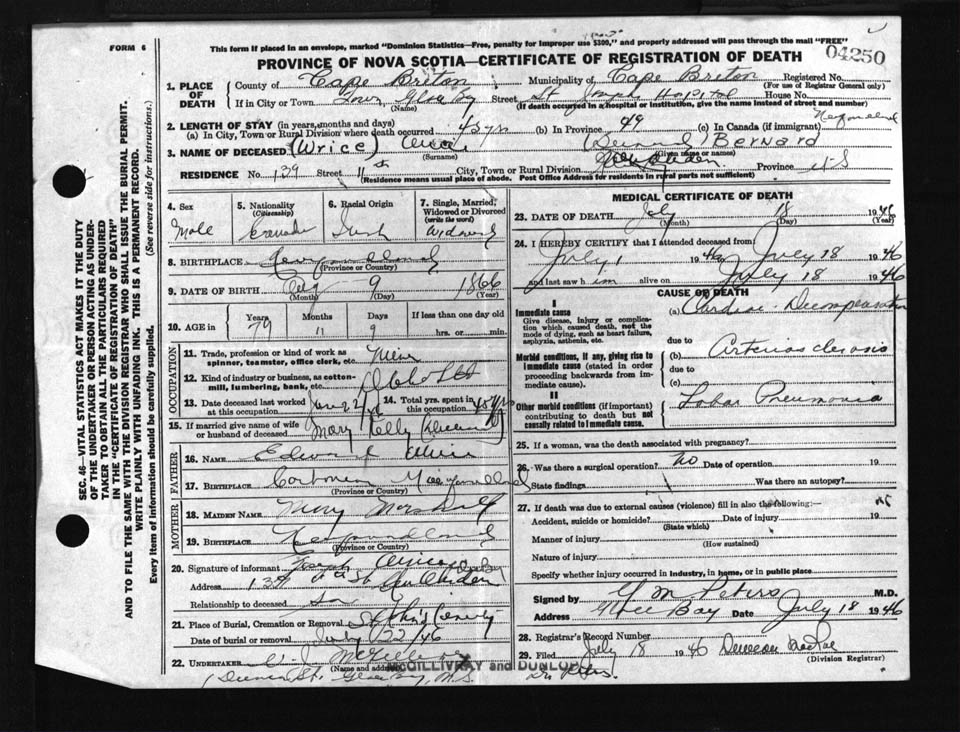 FORM 6
This form if placed in an envelope, marked "Dominion Statistics—Free, penalty for improper use $300," and properly addressed will pass through the mail "FREE"
04250
PROVINCE OF NOVA SCOTIA—CERTIFICATE OF REGISTRATION OF DEATH
1. PLACE OF DEATH
County of Cape Breton Municipality of Cape Breton Registered No.
(For use of Registrar General only)
If in City or Town Town Glace Bay Street St Joseph Hospital House No.
(Name) (If death occurred in a hospital or institution, give the name instead of street and number)
2. LENGTH OF STAY (in years, months and days)
(a) In City, Town or Rural Division where death occurred 45 yrs (b) In Province 49 (c) In Canada (if immigrant) Newfoundland
3. NAME OF DECEASED (Wrice) Bernard
(Surname) (Given name or names)
RESIDENCE No. 139 Street 11th City, Town or Rural Division New Aberdeen Province N S
(Residence means usual place of abode. Post Office Address for residents in rural parts not sufficient)
4. Sex Male
5. Nationality (Citizenship) Canada
6. Racial Origin Irish
7. Single, Married, Widowed or Divorced (write the word) Widowed
8. BIRTHPLACE Newfoundland
(Province or Country)
9. DATE OF BIRTH Aug 9 1866
(Month) (Day) (Year)
10. AGE in Years 79 Months 11 Days 9 If less than one day old hrs. or min.
OCCUPATION
11. Trade, profession or kind of work as spinner, teamster, office clerk, etc. Miner
12. Kind of industry or business, as cotton-mill, lumbering, bank, etc.
13. Date deceased last worked at this occupation 14. Total yrs. spent in this occupation
15. If married give name of wife or husband of deceased Mary Kelly
FATHER
16. NAME Edward
17. BIRTHPLACE Carbonear Newfoundland
(Province or Country)
MOTHER
18. MAIDEN NAME Mary
19. BIRTHPLACE Newfoundland
(Province or Country)
20. Signature of informant Joseph
Address 139 11th St New Aberdeen
Relationship to deceased Son
21. Place of Burial, Cremation or Removal Cemetery
Date of burial or removal July 22/46
22. UNDERTAKER
(Name and address)
McGILLIVRAY and DUNLOP
Glace Bay, N.S.
MEDICAL CERTIFICATE OF DEATH
23. DATE OF DEATH July 18 1946
(Month) (Day) (Year)
24. I HEREBY CERTIFY that I attended deceased from
July 1 1946 to July 18 1946
and last saw him alive on July 18 1946
CAUSE OF DEATH
I
Immediate cause
Give disease, injury or complication which caused death, not the mode of dying, such as heart failure, asphyxia, asthenia, etc.
(a) Cardiac Decompensation
due to
Morbid conditions, if any, giving rise to immediate cause (stated in order proceeding backwards from immediate cause).
(b) Arteriosclerosis
due to
(c)
II
Other morbid conditions (if important) contributing to death but not causally related to immediate cause.
Lobar Pneumonia
25. If a woman, was the death associated with pregnancy?
26. Was there a surgical operation? No Date of operation 19
State findings Was there an autopsy?
27. If death was due to external causes (violence) fill in also the following:
Accident, suicide or homicide? Date of injury 19
(State which)
Manner of injury
(How sustained)
Nature of injury
Specify whether injury occurred in industry, in home, or in public place
Signed by M Peters M.D.
Address Glace Bay Date July 18 1946
28. Registrar's Record Number
29. Filed July 18 1946
(Division Registrar)
SEC. 46—VITAL STATISTICS ACT MAKES IT THE DUTY
OF THE UNDERTAKER OR PERSON ACTING AS UNDERTAKER TO OBTAIN ALL THE PARTICULARS REQUIRED
IN THE "CERTIFICATE OF REGISTRATION OF DEATH"
AND TO FILE THE SAME WITH THE DIVISION REGISTRAR WHO SHALL ISSUE THE BURIAL PERMIT.
WRITE PLAINLY WITH UNFADING INK. THIS IS A PERMANENT RECORD.
Every item of information should be carefully supplied. (See reverse side for instructions.)